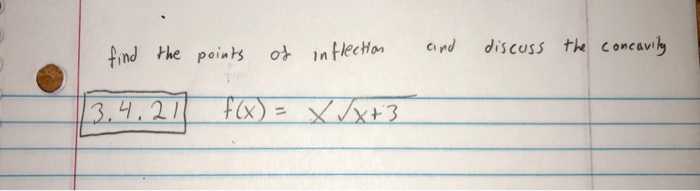 find the points of inflection and discuss the concavity
3.4.21 f(x) = x√x+3